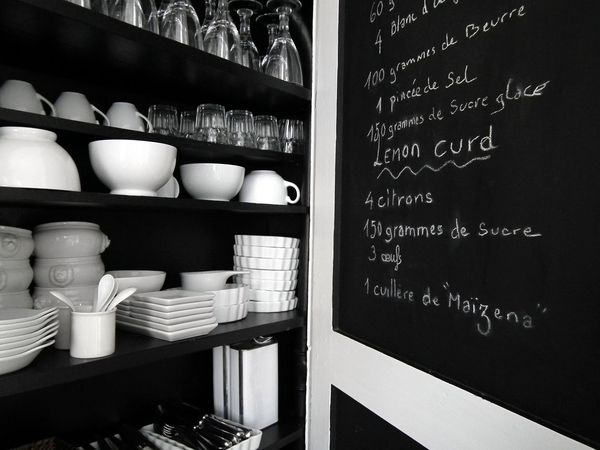 60 g
4 Blanc d'
100 grammes de Beurre
1 pincée de Sel
150 grammes de Sucre glace
Lemon curd
4 citrons
150 grammes de Sucre
3 œufs
1 cuillère de "Maïzena"